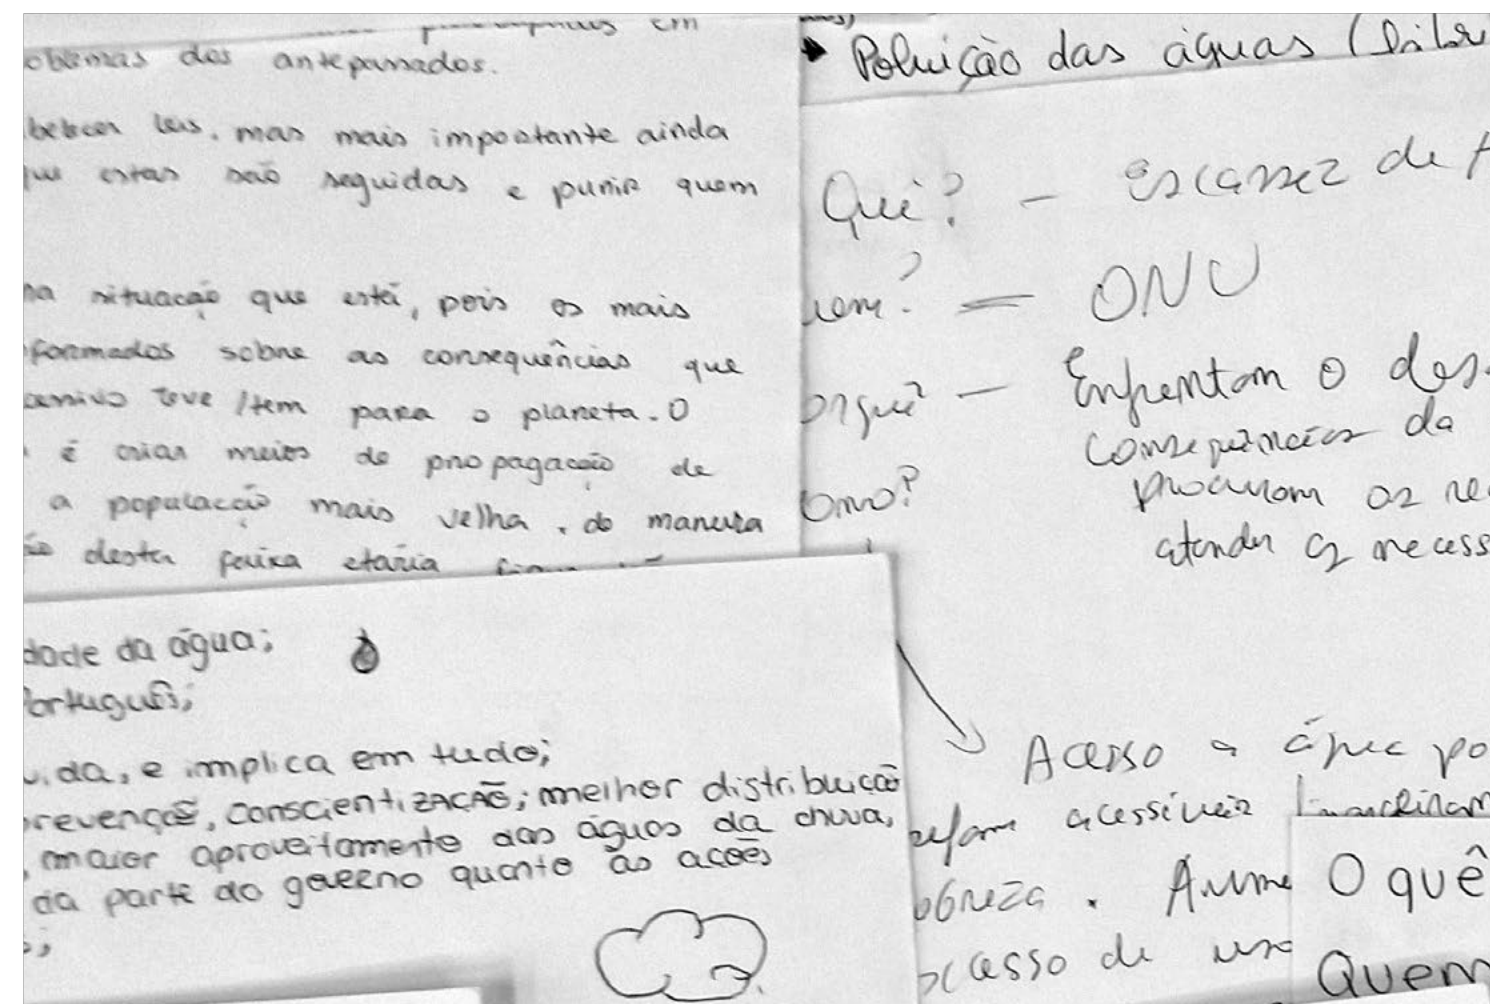 em
oblemas dos antepassados.
belecer leis, mas mais importante ainda
que estas são seguidas e punir quem
na situação que está, pois os mais
formados sobre as consequências que
teve/tem para o planeta. O
é criar meios de propagação de
a população mais velha, de maneira
desta faixa etária
dade da água;
Português;
vida, e implica em tudo;
revenção, conscientização; melhor distribuição
, maior aproveitamento das águas da chuva,
da parte do governo quanto às ações
;
Poluição das águas (
Quê? - Escassez de
uem? = ONU
orquê? - Enfrentam o des
consequências da
procuram os re
omo?
atender as necess
Acesso a água po
sejam acessíveis financeiram
obreza. Aume
ocesso de
O quê
Quem